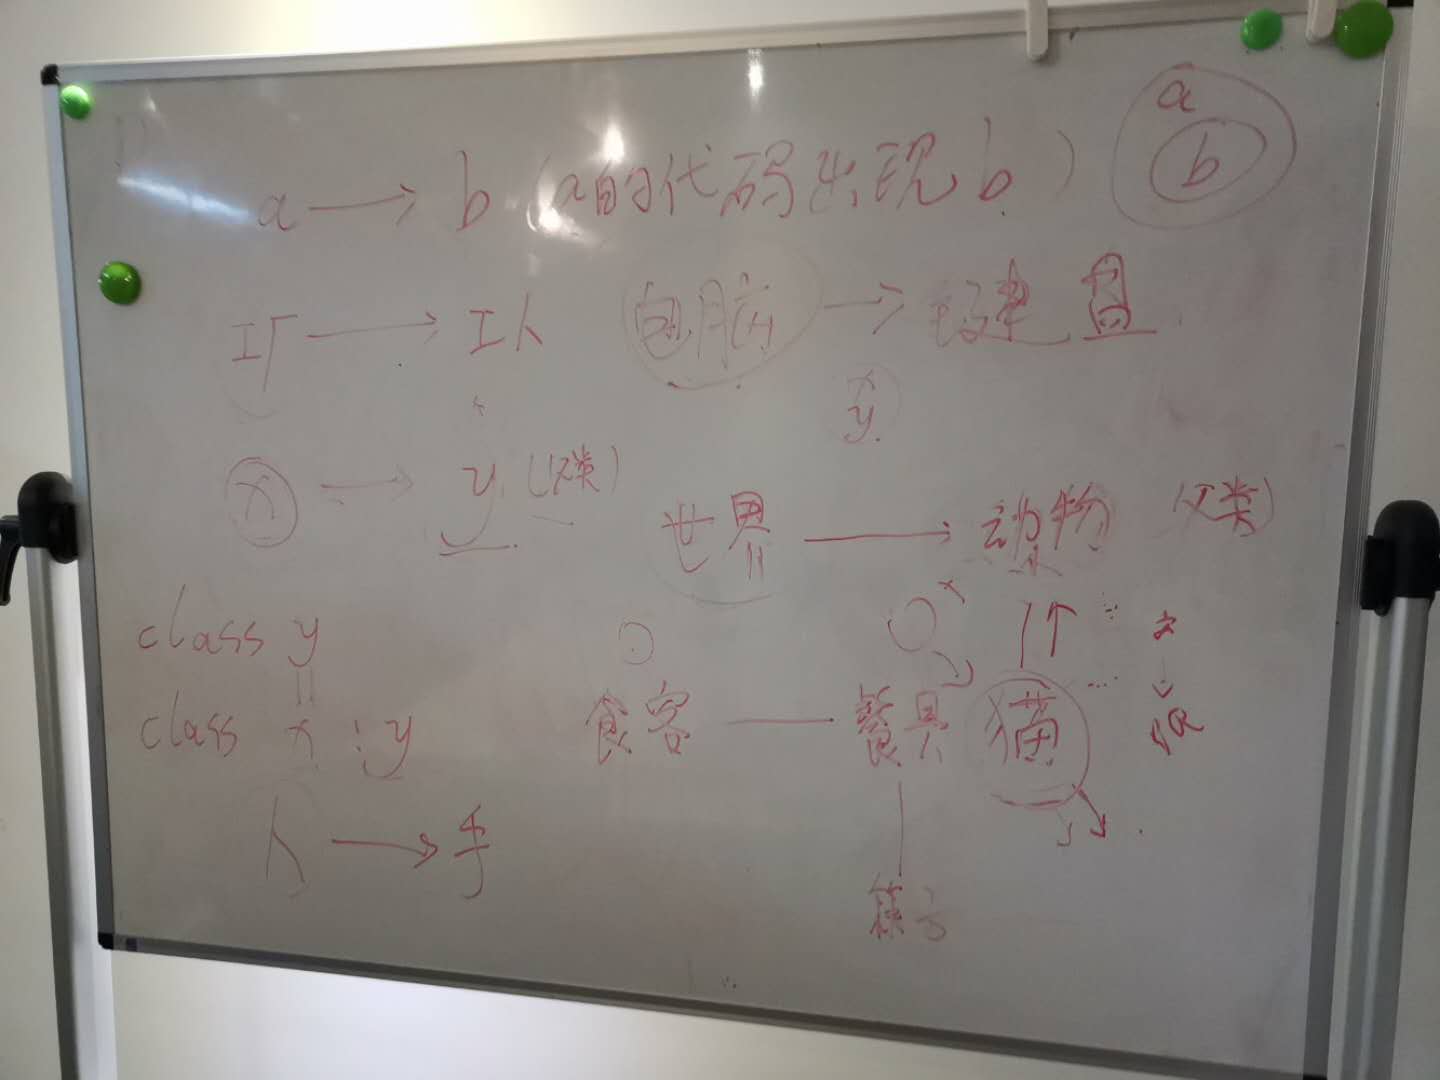 a
b
a → b (a的代码出现b)
工厂 → 工人
电脑 → 键盘
x
y
x → y (父类)
世界 → 动物 (父类)
class y
class x : y
食客 — 餐具
猫
人 → 手